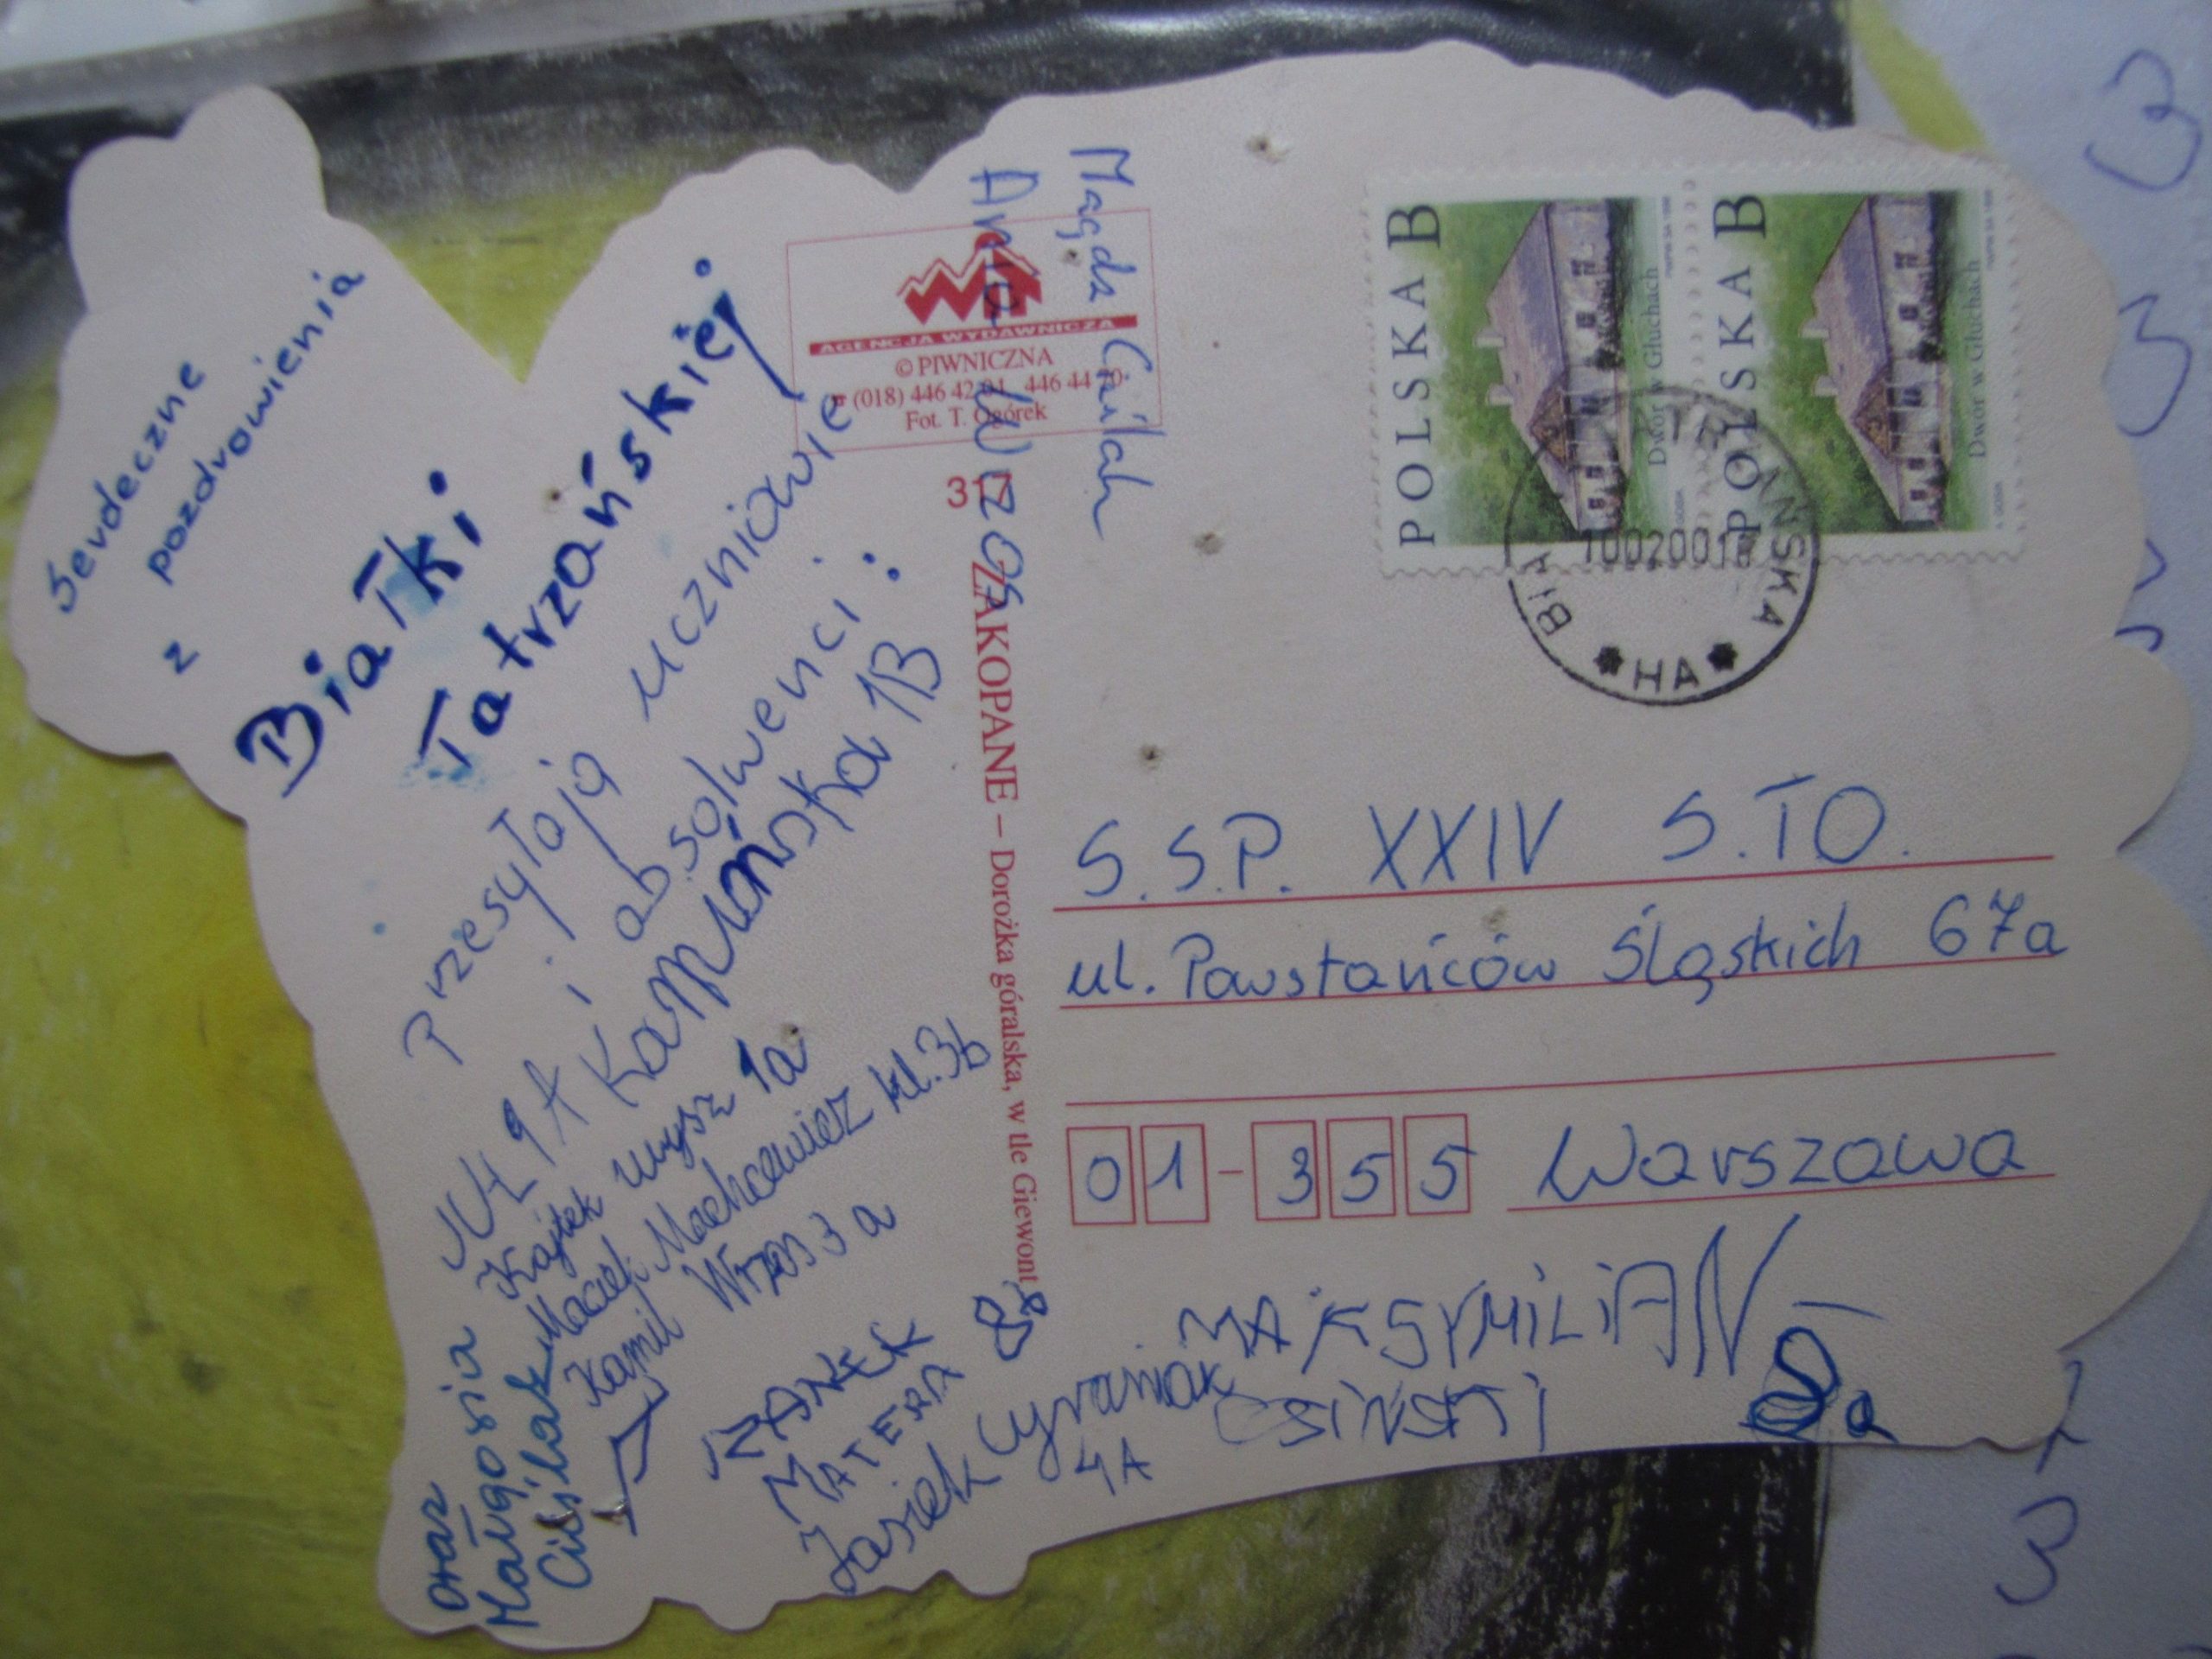 Serdeczne
pozdrowienia
z
Białki
Tatrzańskiej
Przesyłają uczniowie
i absolwenci:
JULIA Kamiońska 1B
Kajtek 1a
Maciek Machcewicz kl. 3b
Kamil Wrzos 3a
oraz
Małgosia
Cichlak
JANEK
MATERA
Jasiek Cyraniak
4A
MAKSYMILIAN
OSIŃSKI
a
Magda Cichlak
Ania Wrzos
AGENCJA WYDAWNICZA
© PIWNICZNA
(018) 446 42 01, 446 44 70
Fot. T. Ogórek
317
ZAKOPANE – Dorożka góralska, w tle Giewont
POLSKA B
Dwór w Głuchach
POLSKA B
Dwór w Głuchach
1002001
HA
S.S.P. XXIV S.TO.
ul. Powstańców Śląskich 67a
01-355 Warszawa